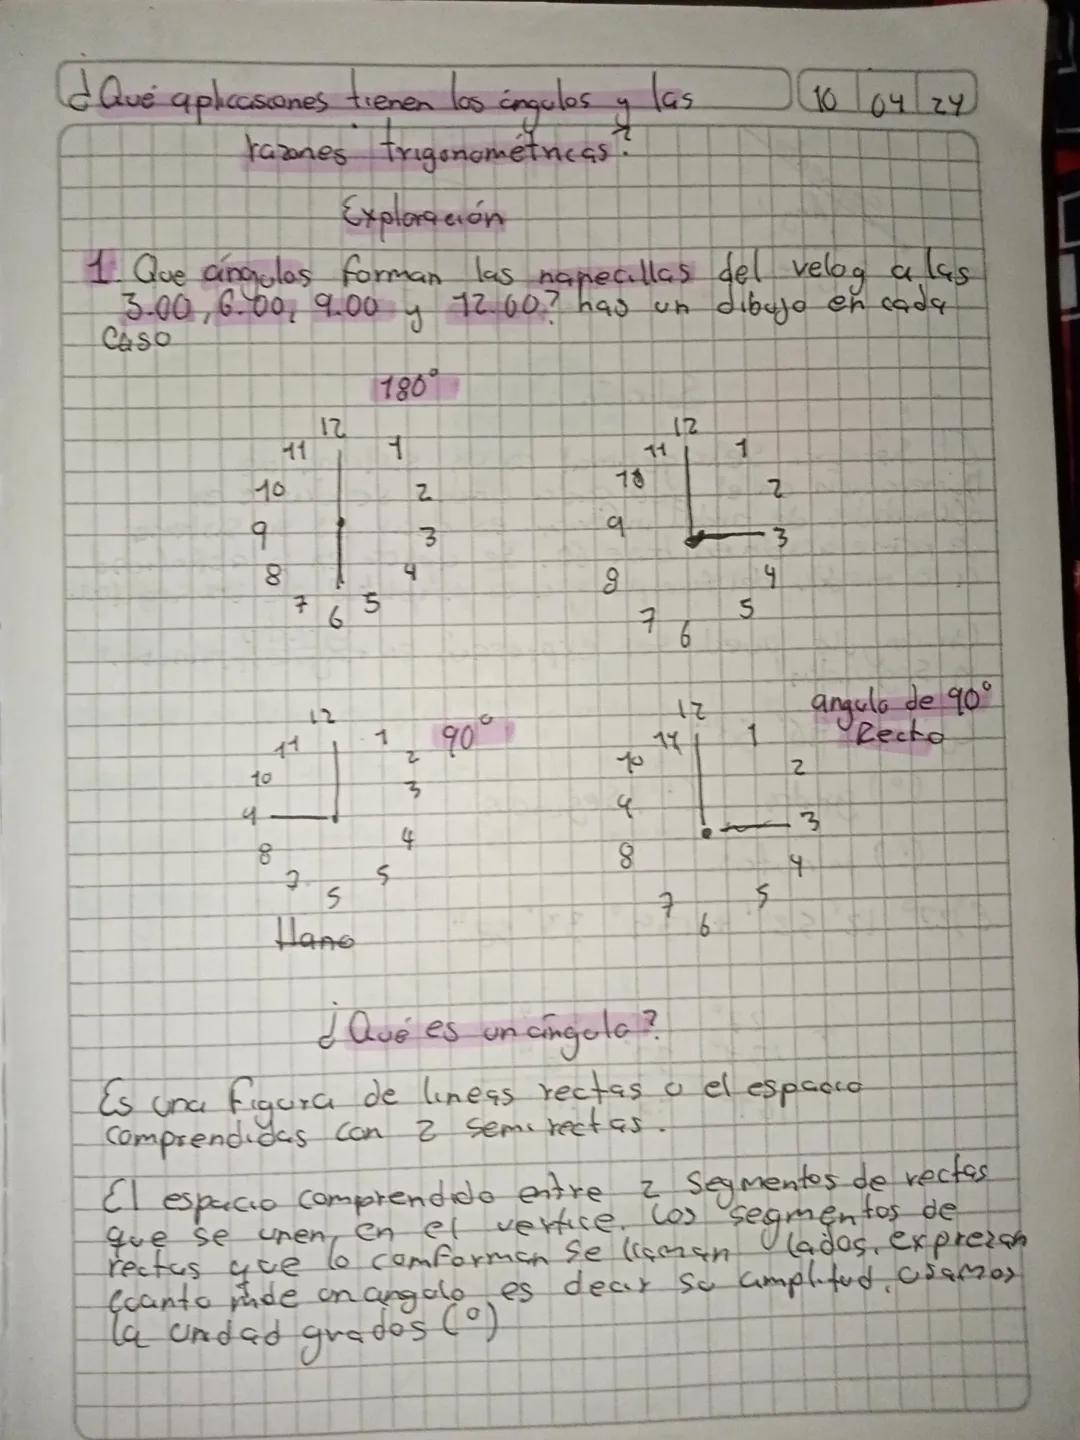 ¿Qué aplicasiones tienen los ángulos y las
10 04 24
razones trigonométricas?
Exploración
1. Que ángulos forman las manecillas del reloj a las
3.00, 6.00, 9.00 y 12.00? has un dibujo en cada
caso
180°
12
11 1
10 2
9 3
8 4
7 6 5
12
11 1
10 2
9 3
8 4
7 6 5
12
11 1 90°
10 2
9 3
8 4
7 5 5
llano
12 angulo de 90°
11 1 Recto
10 2
9 3
8 4
7 6 5
¿Qué es un ángulo?
Es una figura de lineas rectas o el espacio
comprendidas con 2 semirectas.
El espacio comprendido entre 2 segmentos de rectas
que se unen, en el vertice. los segmentos de
rectas que lo comforman se llaman lados. exprezan
cuanto mide un angulo es decir su amplitud, usamos
la unidad grados (°)